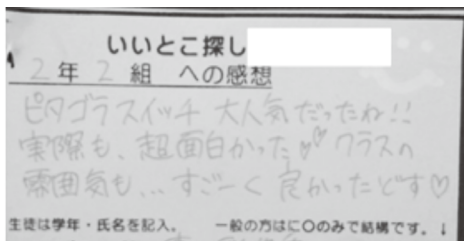 いいとこ探し
2年 2組 への感想
ピタゴラスイッチ 大人気だったね!!
実際も、超面白かった♡♡ クラスの
雰囲気も、... すごーく 良かったどす♡
生徒は学年・氏名を記入。 一般の方はに〇のみで結構です。↓